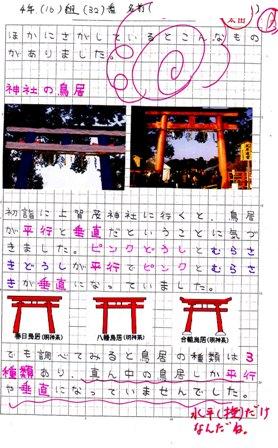 4年(10)組(32)番 名前(
太田
ほかにさがしているとこんなもの
がありました。
神社の鳥居
初詣に上賀茂神社に行くと、鳥居
が平行と垂直だということに気づ
きました。ピンクどうしとむらさ
きどうしが平行でピンクとむらさ
きが垂直になっていました。
春日鳥居(明神系)
八幡鳥居(明神系)
台輪鳥居(明神系)
でも調べてみると鳥居の種類は3
種類あり、真ん中の鳥居しか平行
や垂直になっていませんでした。
水平(横)だけ
なんだね。